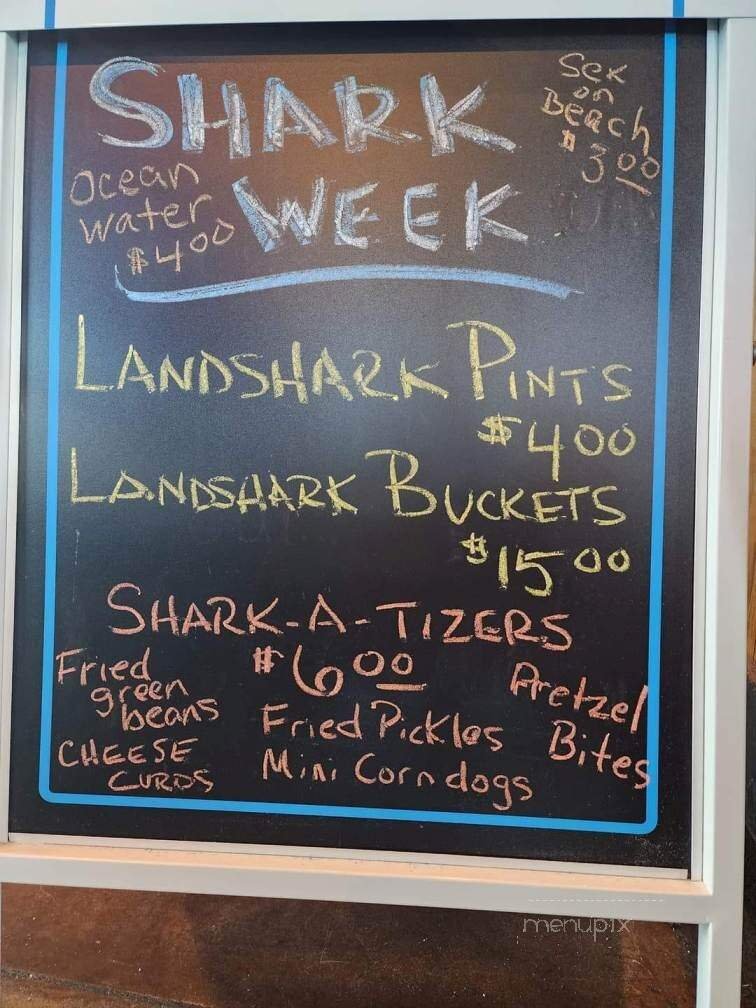 SHARK
WEEK
Sex
on
Beach
$3.00
Ocean
Water
$400
LANDSHARK PINTS
$400
LANDSHARK BUCKETS
$1500
SHARK-A-TIZERS
$600
Fried
green
beans
CHEESE
CURDS
Fried Pickles
Mini Corndogs
Pretzel
Bites
menupix